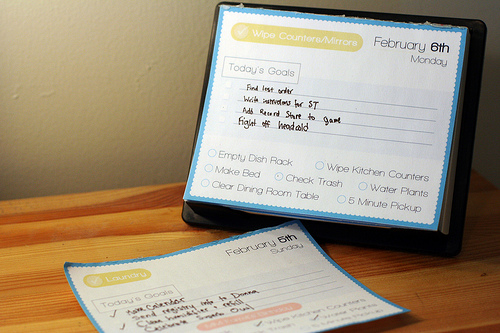 Wipe Counters/Mirrors
February 6th
Monday
Today's Goals
Find lost order
Write for ST
Add Record Store to game
Fight off headcold
Empty Dish Rack
Wipe Kitchen Counters
Make Bed
Check Trash
Water Plants
Clear Dining Room Table
5 Minute Pickup
February 5th
Sunday
Laundry
Today's Goals
Calendar
Send registry info to Donna
Clean humidifier + refill
Celebrate Super Owl
Wipe Kitchen Counters